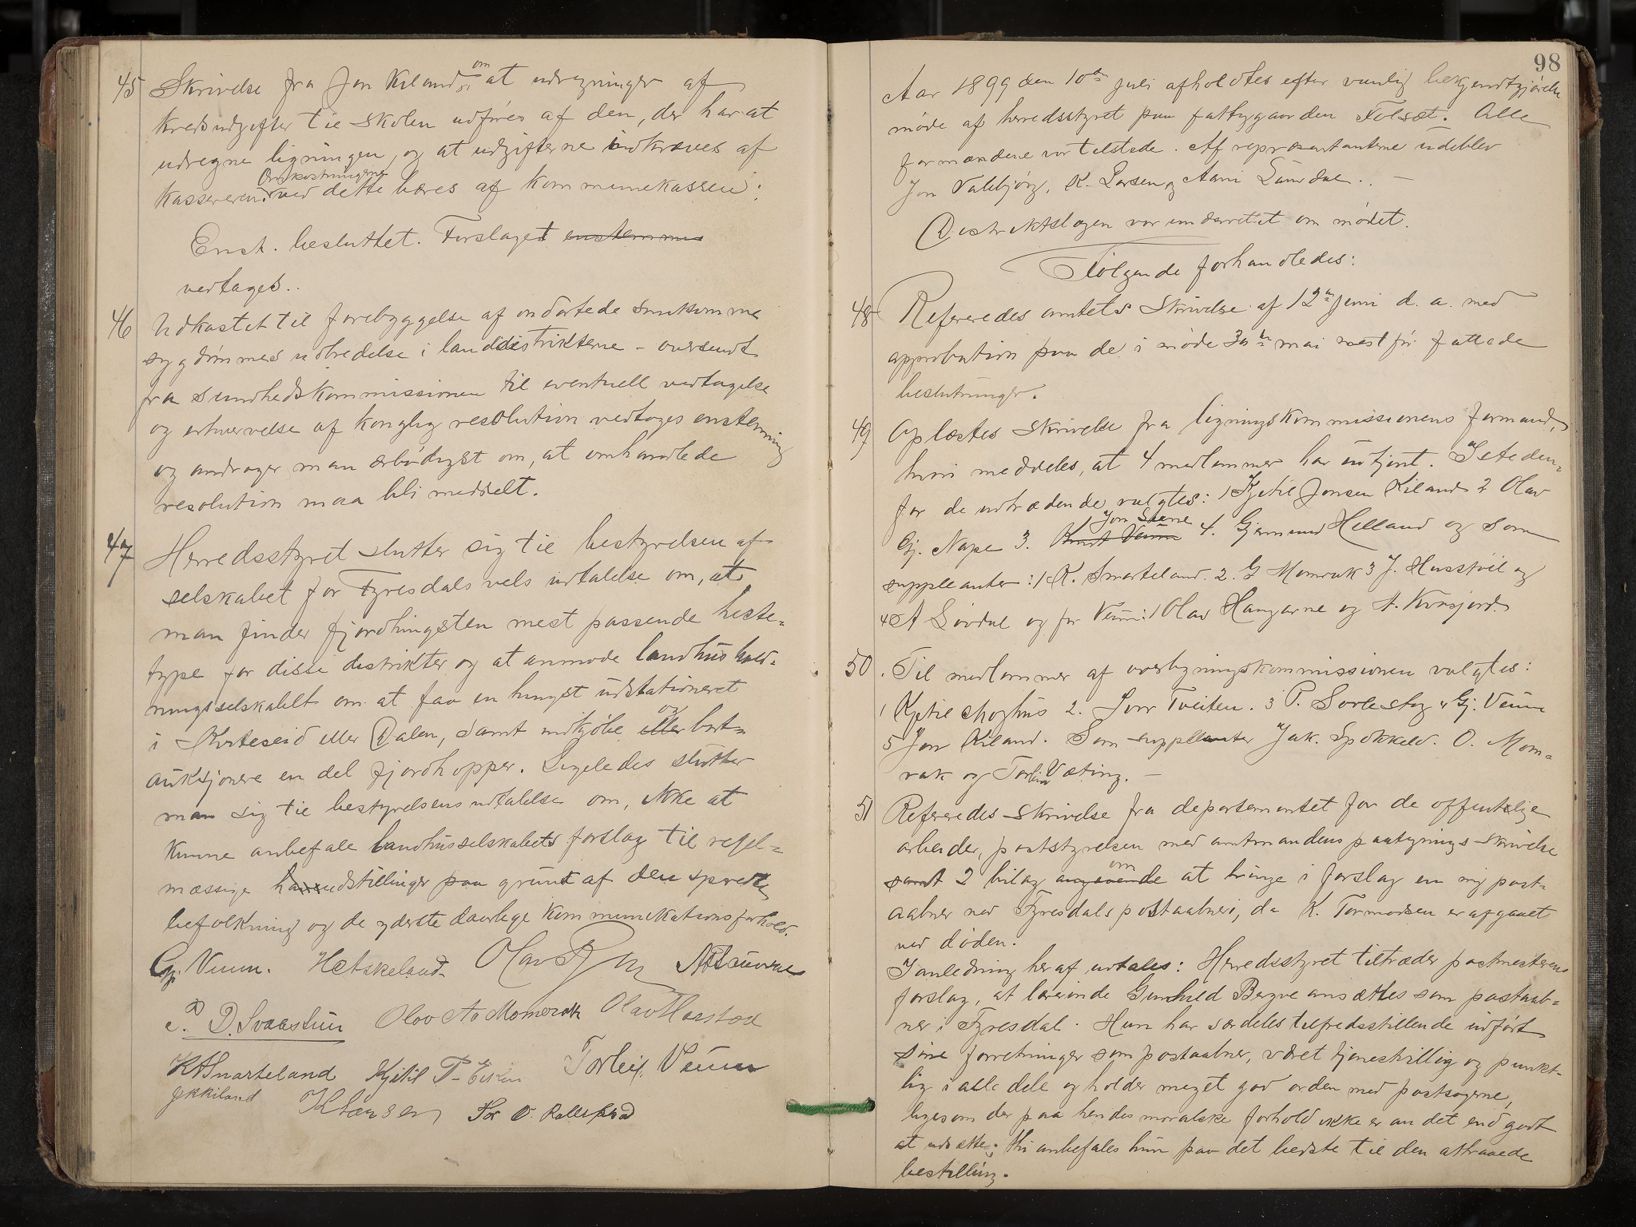 45 Skrivelse fra Jon Kiland om at udregninger af
kredsudgifter til skolen udføres af den, der har at
udregne ligningen, og at udgifterne indkræves af
kassereren. Omkostningerne ved dette bæres af kommunekassen:
Enst. besluttet. Forslaget enstemmig
vedtages..
46 Udkastet til forebyggelse af ondartede smitsomme
sygdommes udbredelse i landdistrikterne – oversendt
fra sundhedskommissionen til eventuell vedtagelse
og erhvervelse af konglig resolution vedtages enstemmig
og andrager man ærbødigst om, at omhandlede
resolution maa bli meddelt.
47 Herredsstyret slutter sig til bestyrelsen af
selskabet for Fyresdals vels udtalelse om, at
man finder fjordhingsten mest passende heste-
type for disse distrikter og at anmode landhushold-
ningsselskabet om at faa en hingst udstationeret
i Kviteseid eller Dalen, samt indkjøbe og eller bort-
auksjonere en del fjordhopper. Ligeledes slutter
man sig til bestyrelsens udtalelse om, ikke at
kunne anbefale landhusselskabets forslag til regel-
mæssige udstillinger paa grund af den spredte
befolkning og de yderste daarlige kommunikationsforhold.
Gj. Veum. H Askeland Olav
P. D. Svaastun Olav Aa Momrak Olav
K A Smarteland Kjetil T. Torleif Veum
J K Kiland K Larsen
98
Aar 1899 den 10de juli afholdtes efter vanlig bekjendtgjørelse
møde af herredsstyret paa fattiggaarden Folsæt. Alle
formændene var tilstede. Af repræsentanterne udeblev
Jon Valebjørg, K. Larsen og Aani Laurdal. –
Distriktslægen var underrettet om mødet.
Følgende forhandledes:
48 Refereredes amtets skrivelse af 12te juni d. a. med
approbation paa de i møde 30te mai næst før fattede
beslutninger.
49 Oplæstes skrivelse fra ligningskommissionens formand,
hvori meddeles, at 4 medlemmer har udtjent. Isteden-
for de udtrædende valgtes: 1 Kjetil Jonsen Kiland 2 Olav
Gj. Nape 3. Jon Steane Knut Veum 4. Gjermund Helland og som
suppleanter: 1 K. Smarteland. 2. G Momrak 3 J. Husstøil og
4 A Løvdal og for Veum: 1 Olav Haugarne og A. Kvipsjord
50. Til medlemmer af overligningskommissionen valgtes:
1 Kjetil Skoghus 2. Sveen Tveiten. 3 P. Sorteslog 4 Gj. Veum
5 Jon Kiland. Som suppleanter Jak. Spokkeld. O. Mom-
rak og Torleiv Væting. –
51 Refereredes skrivelse fra departementet for de offentlige
arbeider, poststyrelsen med amtmandens paategningsskrivelse
samt 2 bilag angaaende om at bringe i forslag en ny post-
aabner ved Fyresdals postaabneri, da K. Tormodsen er afgaaet
ved døden.
I anledning heraf udtales: Herredsstyret tiltræder postmesterens
forslag, at lærerinde Gunhild Berge ansættes som postaab-
ner i Fyresdal. Hun har særdeles tilfredsstillende udført
sine forretninger som postaabner, været tjenestvillig og punkt-
lig i alle dele og holder meget god orden med postsagerne,
ligesom der paa hendes moralske forhold ikke er an det end godt
at udsætte; thi anbefales hun paa det bedste til den attraaede
bestilling.